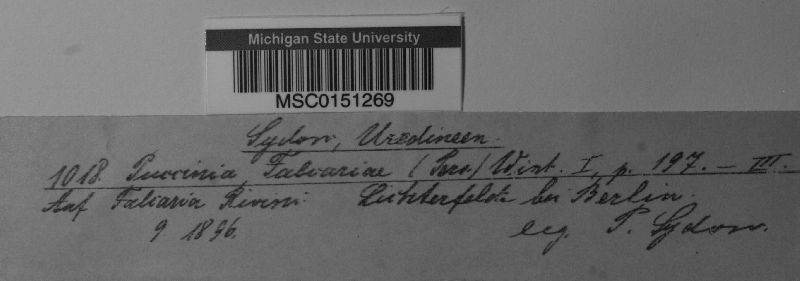 Michigan State University
MSC0151269
Sydow, Uredineen.
1018. Puccinia Falcariae (Pers.) Wint. I, p. 197. – III.
Auf Falcaria Rivini. Lichterfelde bei Berlin.
9. 1896. leg. P. Sydow.